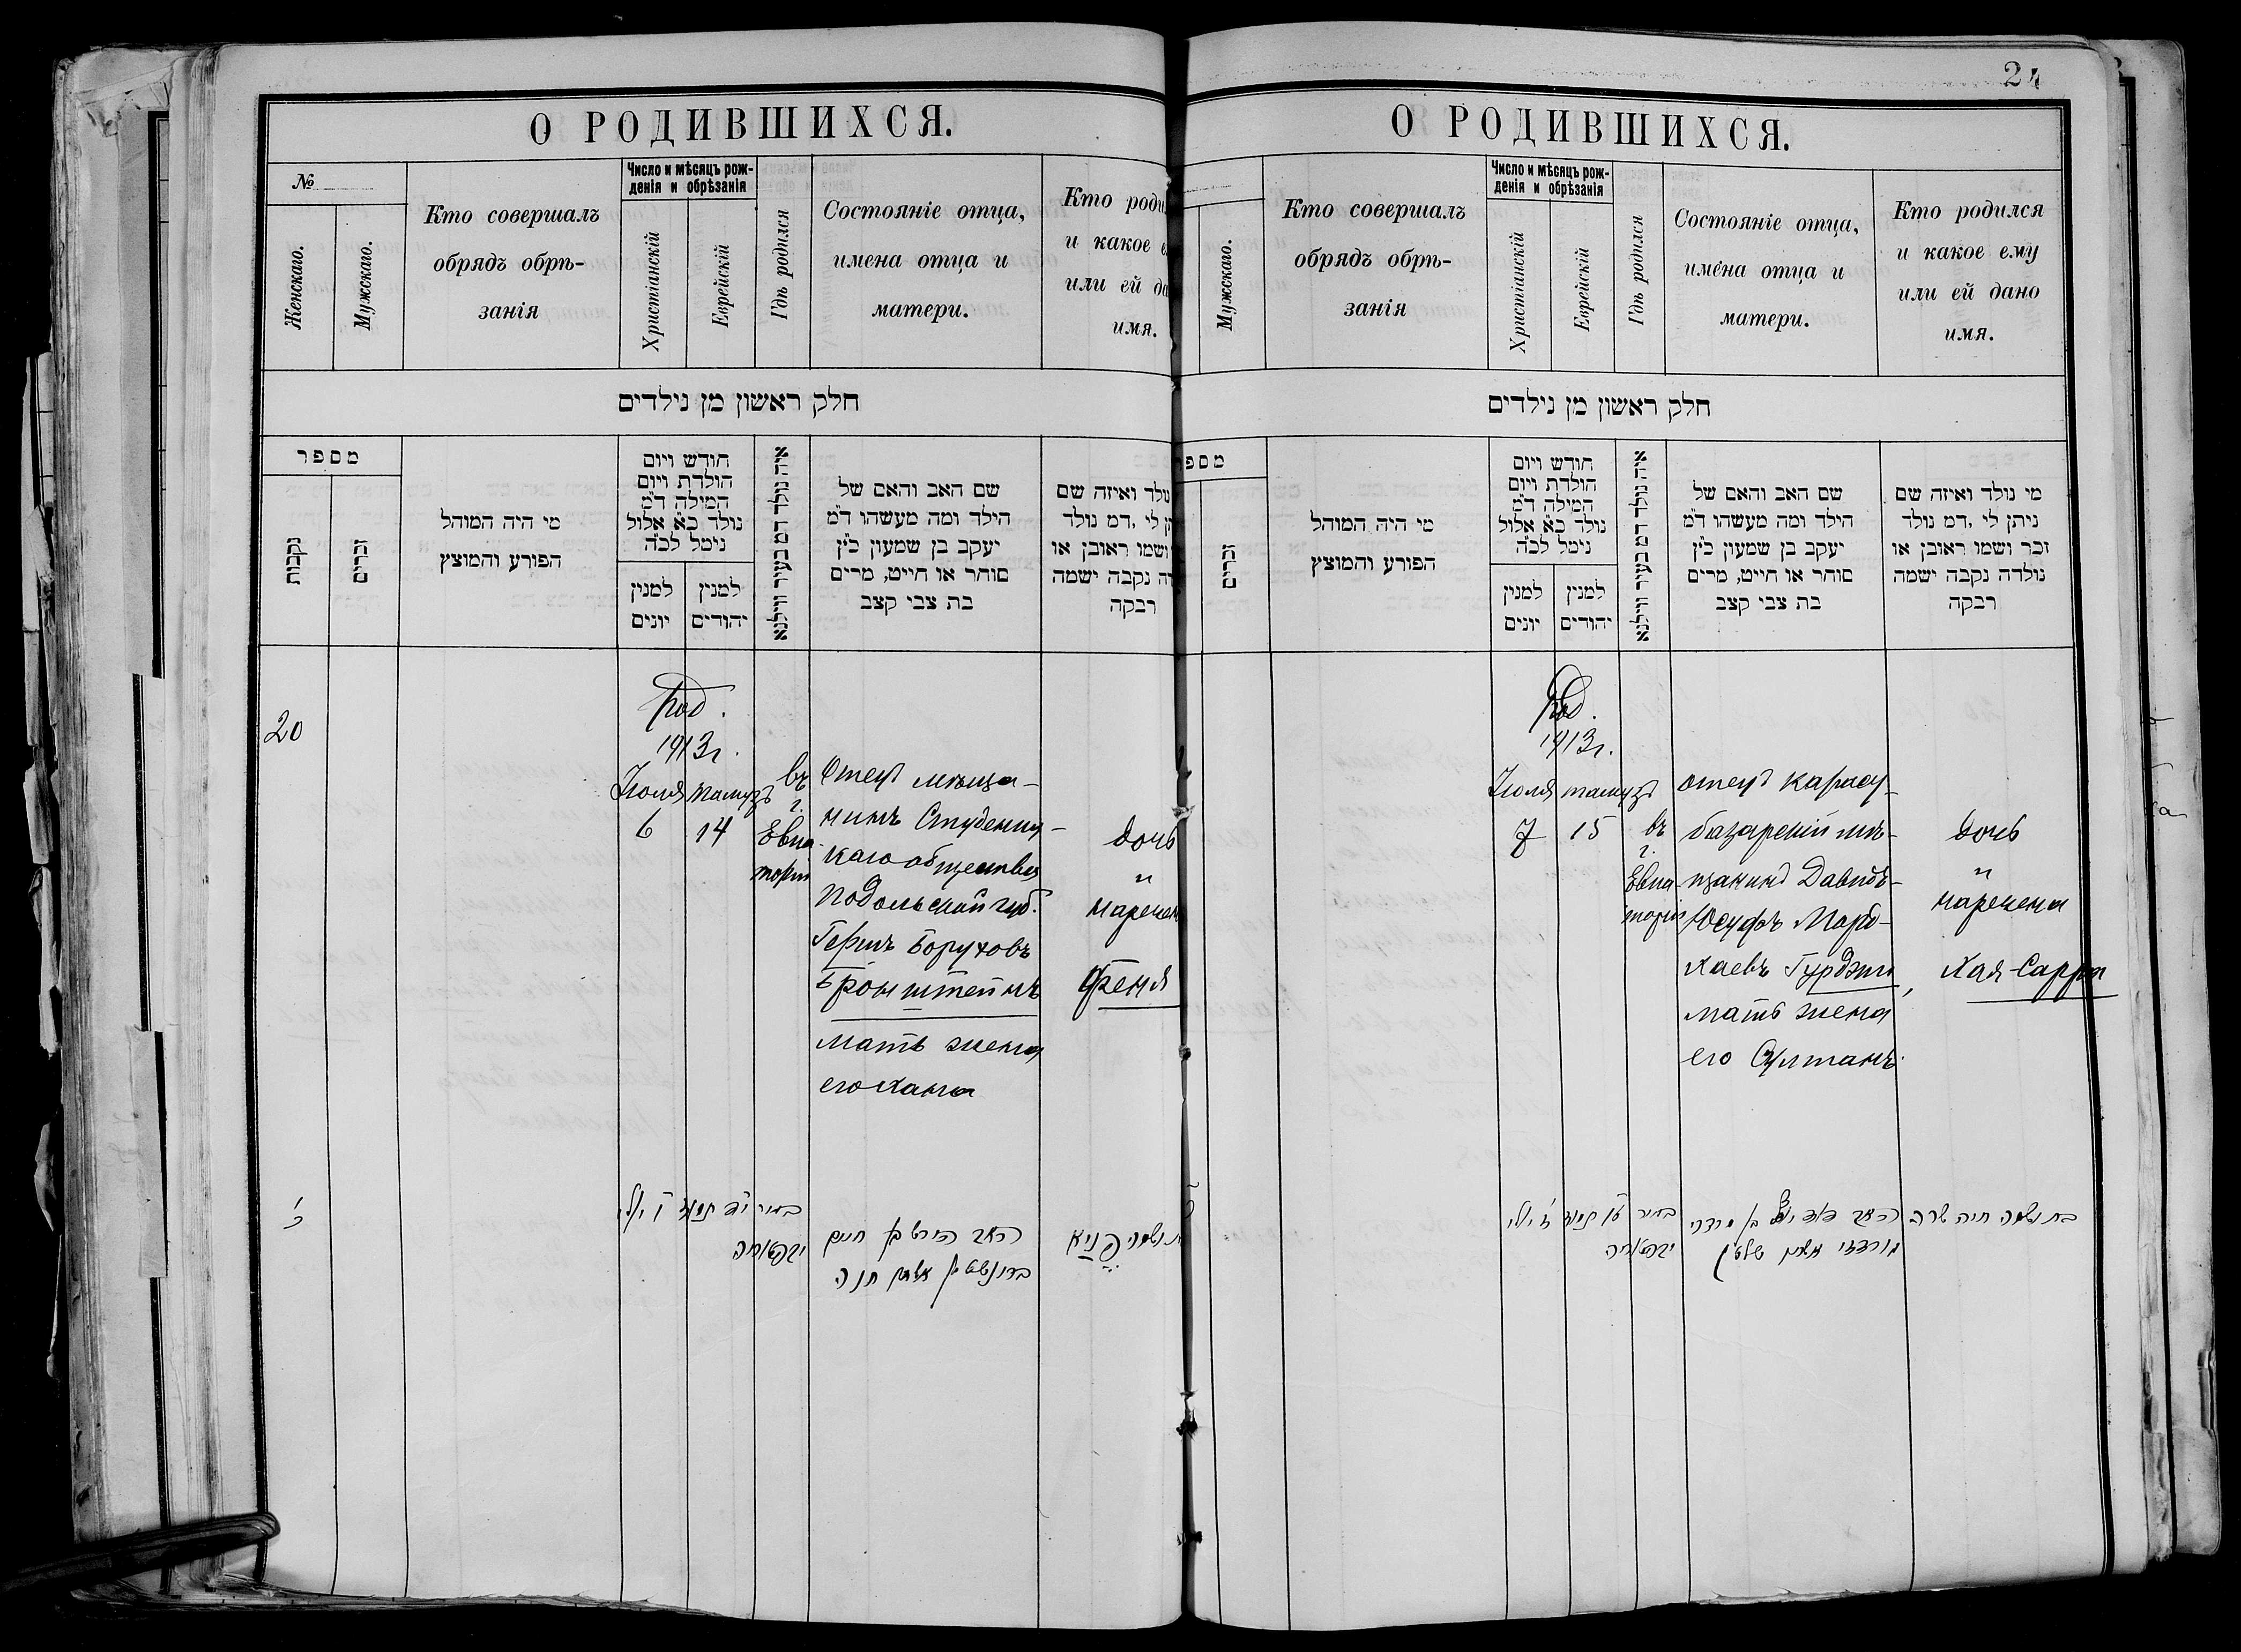 24
О РОДИВШИХСЯ.
№
Женскаго.
Мужскаго.
Кто совершалъ
обрядъ обрѣ-
занія
Число и мѣсяцъ рож-
денія и обрѣзанія
Христіанскій
Еврейскій
Гдѣ родился
Состояніе отца,
имена отца и
матери.
Кто роди
и какое е
или ей да
имя.
חלק ראשון מן נילדים
מספר
נקבות
זכרים
מי היה המוהל
הפורע והמוצץ
חודש ויום
הולדת ויום
המילה ד״מ
נולד כ״א אלול
נימל לכ״ה
למנין
יונים
למנין
יהודים
איה נולד דמ בעיר ווילנא
שם האב והאם של
הילד ומה מעשהו ד״מ
יעקב בן שמעון כ״ץ
סוחר או חייט, מרים
בת צבי קצב
נולד ואיזה שם
תן לי ,דמ נולד
ושמו ראובן או
דה נקבה ישמה
רבקה
20
Год.
1913 г.
Іюля
тамузъ
6
14
въ
г.
Евпа-
торіи
Отецъ мѣща-
нинъ Студениц-
каго общества
Подольской губ.
Гершъ Боруховъ
Бронштейнъ
мать жена
его Хана
дочь
"
наречен
Феня
כ׳
ו׳ יולי
י״ד תמוז
בעיר
האב הירש בן חיים
ברונשטין אמו חנה
שמה פניא
О РОДИВШИХСЯ.
Мужскаго.
Кто совершалъ
обрядъ обрѣ-
занія
Число и мѣсяцъ рож-
денія и обрѣзанія
Христіанскій
Еврейскій
Гдѣ родился
Состояніе отца,
имена отца и
матери.
Кто родился
и какое ему
или ей дано
имя.
חלק ראשון מן נילדים
מספר
זכרים
מי היה המוהל
הפורע והמוצץ
חודש ויום
הולדת ויום
המילה ד״מ
נולד כ״א אלול
נימל לכ״ה
למנין
יונים
למנין
יהודים
איה נולד דמ בעיר ווילנא
שם האב והאם של
הילד ומה מעשהו ד״מ
יעקב בן שמעון כ״ץ
סוחר או חייט, מרים
בת צבי קצב
מי נולד ואיזה שם
ניתן לי ,דמ נולד
זכר ושמו ראובן או
נולדה נקבה ישמה
רבקה
Год.
1913 г.
Іюля
тамузъ
7
15
въ
г.
Евпа-
торіи
отецъ карасу-
базарскій мѣ-
щанинъ Давидъ-
Юсуфъ Мард-
хаевъ Гурджи,
мать жена
его Султанъ
дочь
"
наречена
Хая-Сарра
ז׳ יולי
ט״ו תמוז
בעיר
האב דוד יוסף בן מרדכי
גורדזי אמו שולטן
בת ושמה חיה שרה